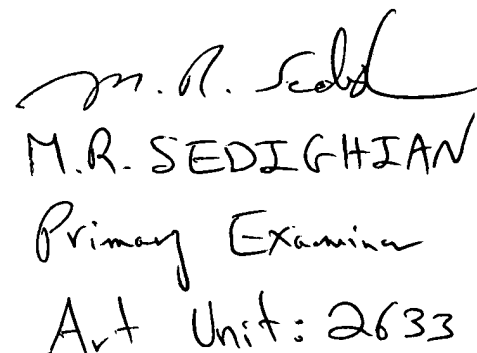 M. R. Sedighian
M.R. SEDIGHIAN
Primary Examiner
Art Unit: 2633